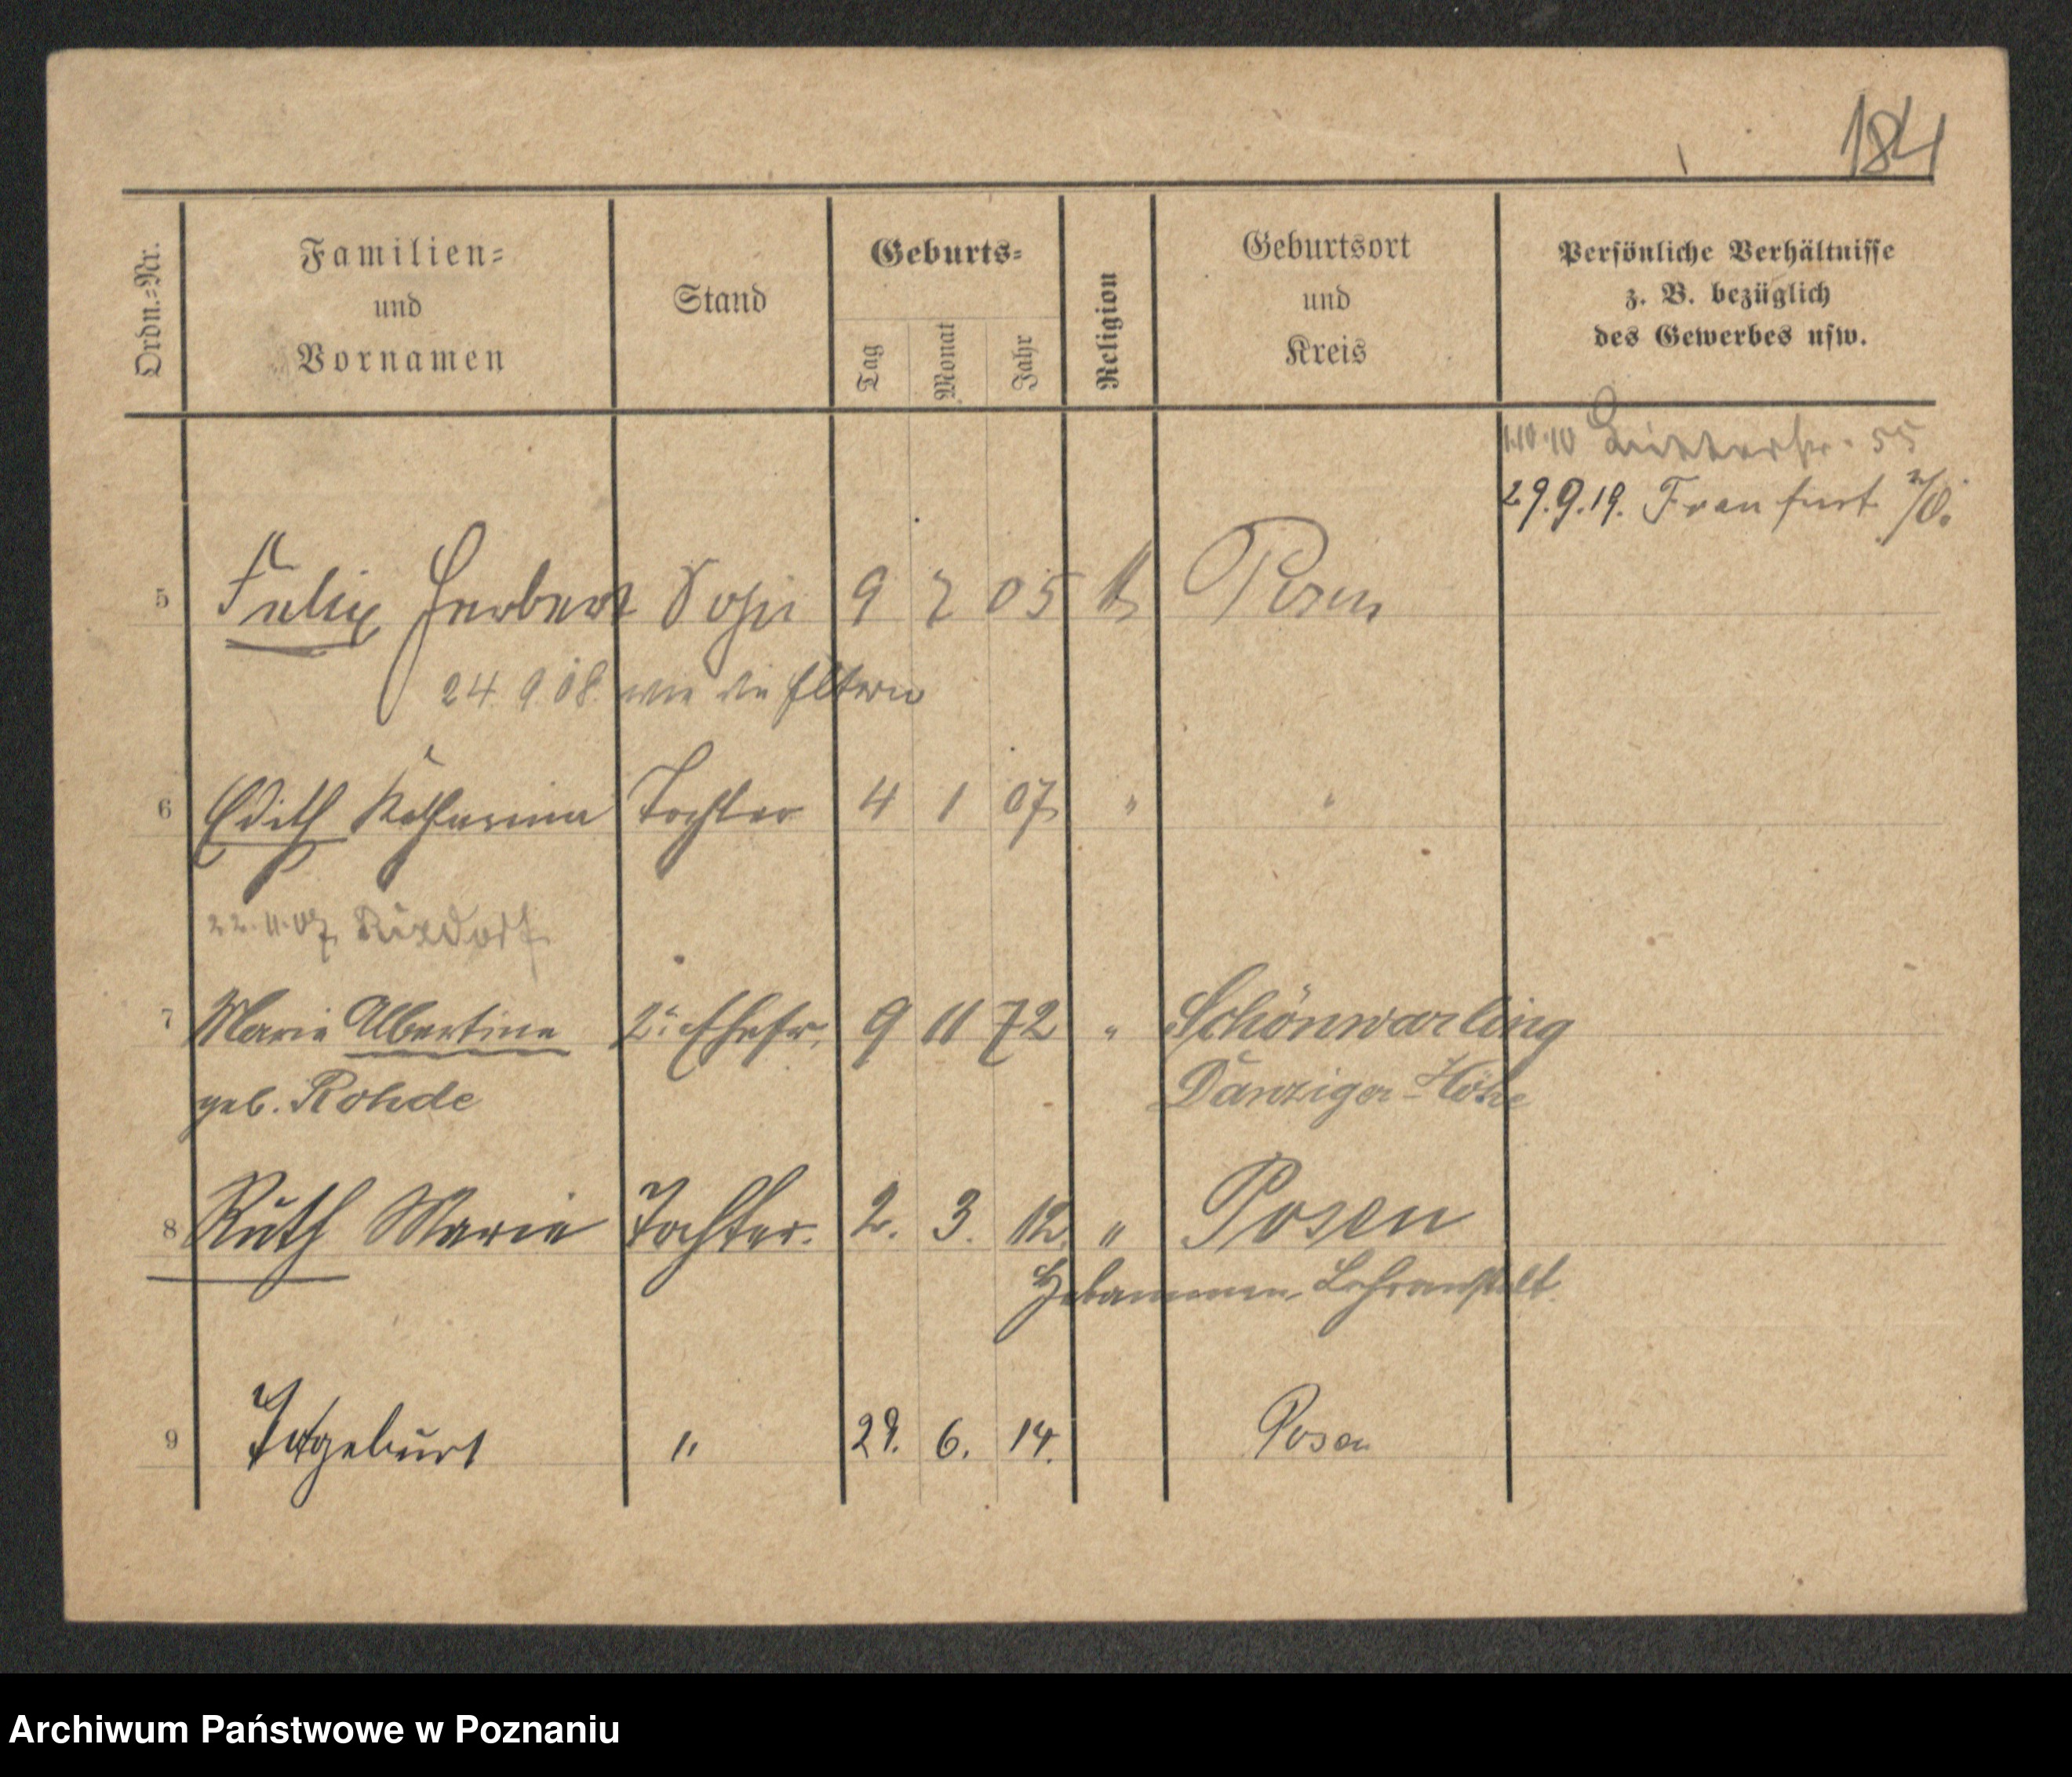 184
Ordn.=Nr.
Familien=
und
Vornamen
Stand
Geburts=
Tag
Monat
Jahr
Religion
Geburtsort
und
Kreis
Persönliche Verhältnisse
z. B. bezüglich
des Gewerbes usw.
1.10.10 str. 55
29.9.19. Frankfurt /O.
5 Felix Herbert Sohn 9 2 05 Posen
24. 9. 08. wie die Eltern
6 Edith Katharina Tochter 4 1 07 " "
22.11.07. Rixdorf
7 Marie Albertine 2. Ehefr. 9 11 72 " Schönwarling
geb. Rohde Danziger-Höhe
8 Ruth Marie Tochter. 2. 3. 12. " Posen
Hebammen-Lehranstalt.
9 Totgeburt " 29. 6. 14. Posen
Archiwum Państwowe w Poznaniu